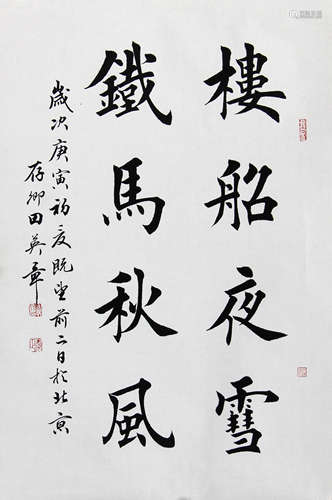 樓船夜雪
鐵馬秋風
歲次庚寅初夏既望前二日於北京
存卿田英章